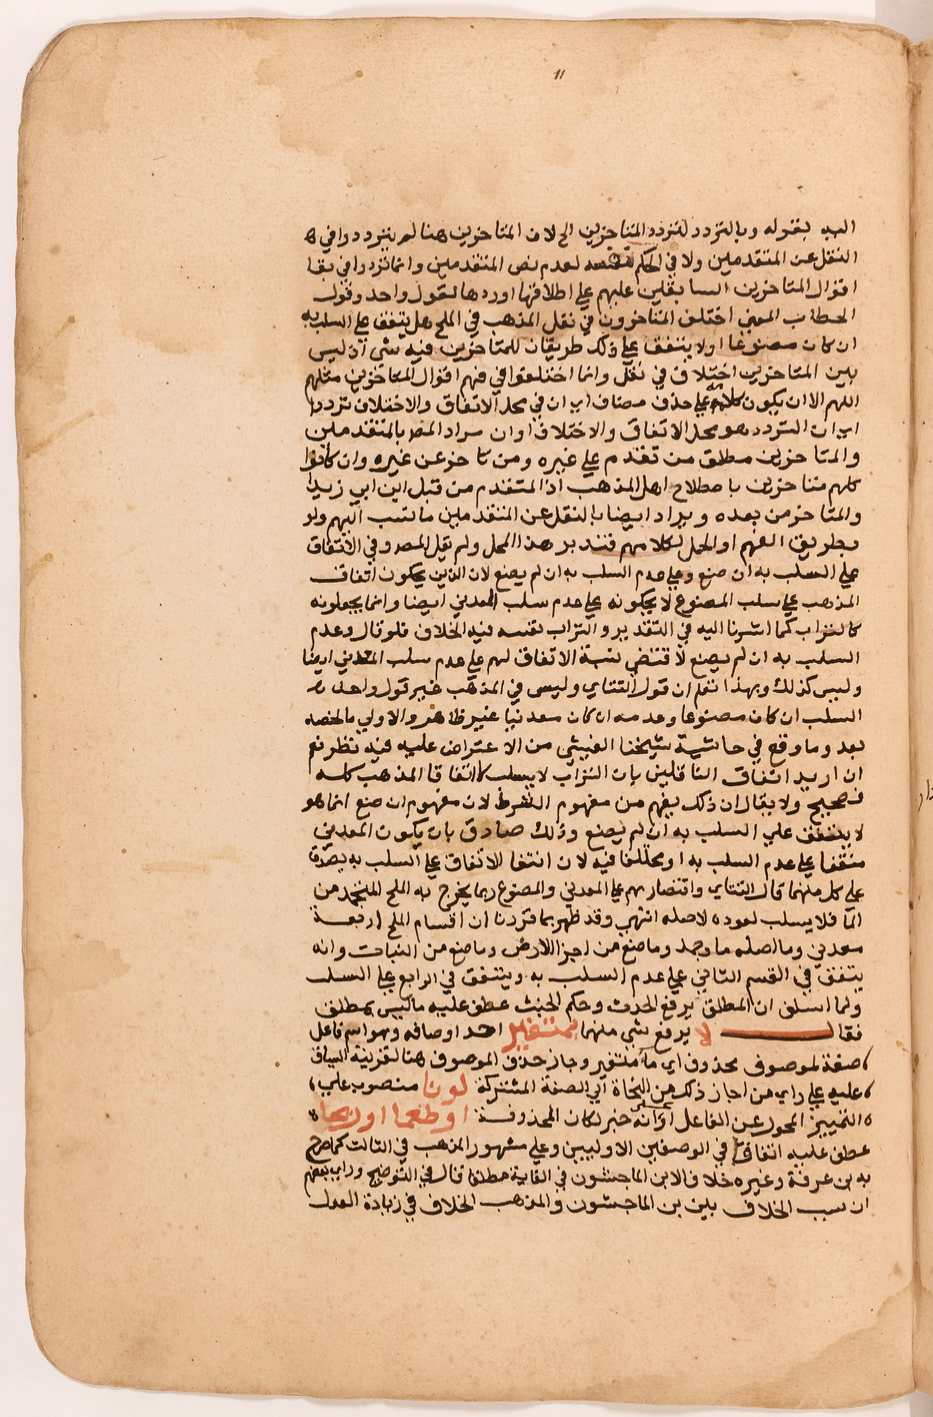 11
اليه بقوله وبالتردد لتردد المتاخرين الخ لان المتاخرين هنا لم يترددوا في
النقل عن المتقدمين ولا في الحكم نفسه لعدم نص المتقدمين وانما ترددوا في بقا
اقوال المتاخرين السابقين عليهم على اطلاقها اوردها لقول واحد وقول
الحطاب المعنى اختلف المتاخرون في نقل المذهب في الملح هل يتفق على السلب به
ان كان مصنوعا اولا يتفق على ذلك طريقان للمتاخرين فيه شي اذ ليس
بين المتاخرين اختلاف في نقل وانما اختلفوا في فهم اقوال المتاخرين مثلهم
اللهم الا ان يكون كلامه على حذف مضاف اي ان في محل الاتفاق والاختلاف ترددا
اي ان التردد هو محل الاتفاق والاختلاف اوان مراد المص بالمتقدمين
والمتاخرين مطلق من تقدم على غيره ومن تاخر عن غيره وان كانوا
كلهم متاخرين باصطلاح اهل المذهب اذ المتقدم من قبل ابن ابي زيد
والمتاخر من بعده ويراد ايضا بالنقل عن المتقدمين ما نسب اليهم ولو
بطريق الفهم او الحمل لكلامهم فتدبر هذا المحل ولم نقل المص وفي الاتفاق
على السلب به ان صنع وعلى عدم السلب به ان لم يصنع لان الذين يحكون اتفاق
المذهب على سلب المصنوع لا يحكونه على عدم سلب المعدني ايضا وانما يجعلونه
كالتراب كما اشرنا اليه في التقدير والتراب نفسه فيه الخلاف فلو قال وعدم
السلب به ان لم يصنع لاقتضى نسبة الاتفاق لهم على عدم سلب المعدني ايضا
وليس كذلك وبهذا تعلم ان قول التتاي وليس في المذهب غير قول واحد
السلب ان كان مصنوعا وعدمه ان كان معدنيا غير ظاهر والاولى ما لخصه
بعد وما وقع في حاشية شيخنا الفيشي من الاعتراض عليه فيه نظر نعم
ان اريد اتفاق الناقلين بان التراب لا يسلب كاتفاق المذهب كله
فصحيح ولا يقال ان ذلك يفهم من مفهوم الشرط لان مفهوم ان صنع انما هو
لا يتفق على السلب به ان لم يصنع وذلك صادق بان يكون المعدني
متفقا على عدم السلب به او مختلفا فيه لان انتفا الاتفاق على السلب به يصدق
على كل منهما قال التتاي واقتصارهم على المعدني والمصنوع ربما يخرج به الملح المنجمد من
الما فلا يسلب لعوده لاصله انتهى وقد ظهر بما قررنا ان اقسام الملح اربعة
معدني وما اصله ما وجمد وما صنع من اجزا الارض وما صنع من النبات وانه
يتفق في القسم الثاني على عدم السلب به ويتفق في الرابع على السلب
ولما اسلف ان المطلق يرفع الحدث وحكم الخبث عطف عليه ما ليس بمطلق
فقال لا يرفع شي منهما بمتغير احد اوصافه وهو اسم فاعل
صفة لموصوف محذوف اي ما متغير وجاز حذف الموصوف هنا لقرينة السياق
عليه على راي من اجاز ذلك من النحاة في الصفة المشتركة لونا منصوب على
التمييز المحول عن الفاعل او انه خبر لكان المحذوفة او طعما او ريحا
عطف عليه اتفاقا في الوصفين الاوليين وعلى مشهور المذهب في الثالث كما صرح
به بن عرفة وغيره خلافا لابن الماجشون في الغاية مطلقا قال في التوضيح وراى بعضهم
ان سبب الخلاف بين بن الماجشون والمذهب الخلاف في زيادة العدل